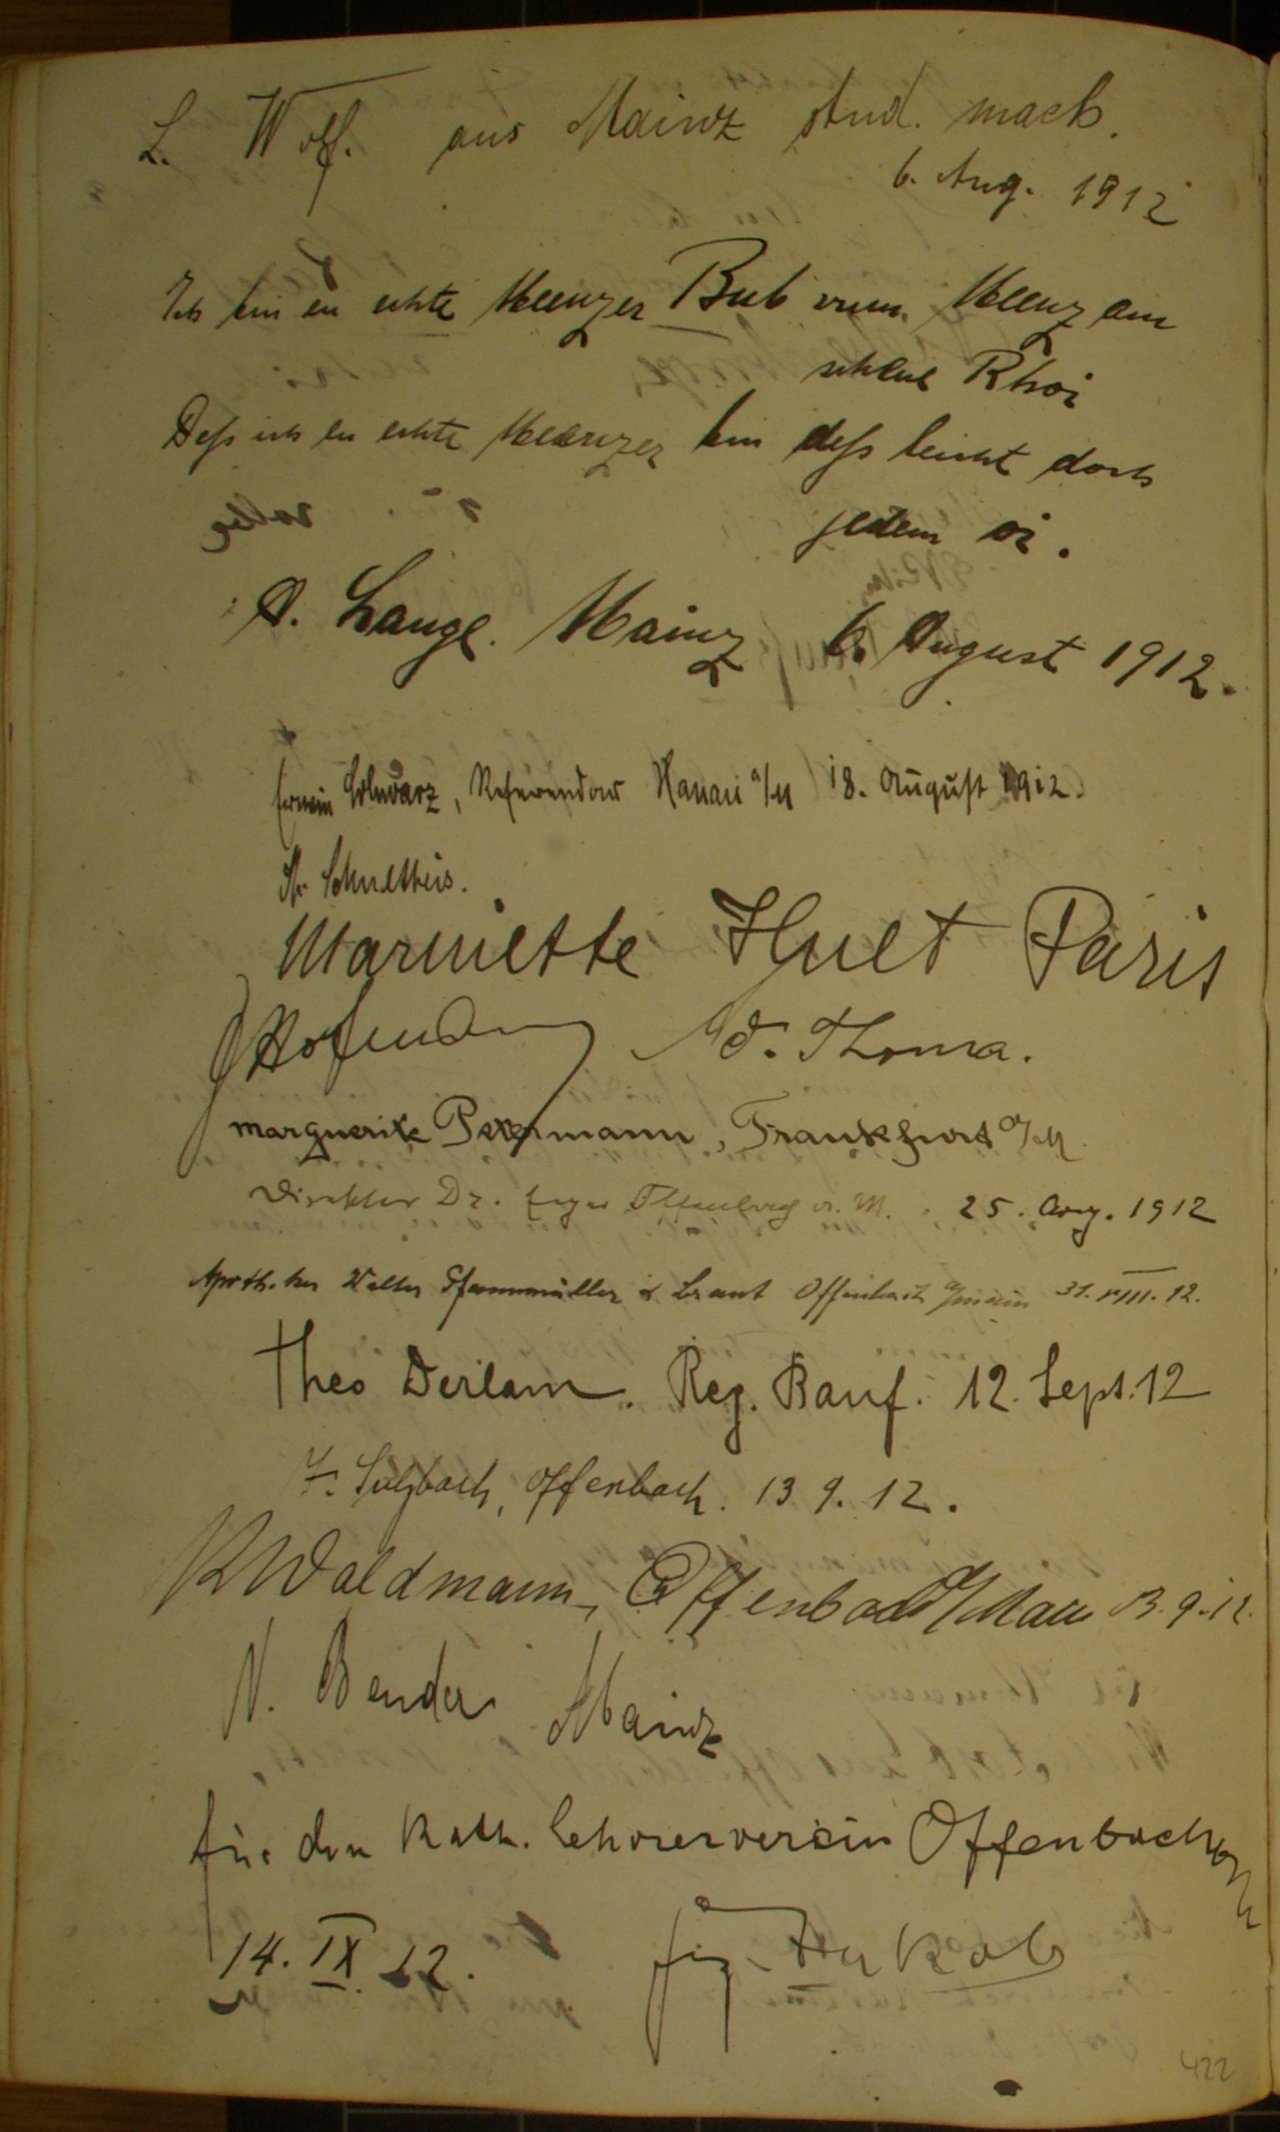 L. Wolf. aus Mainz stud. mach.
6. Aug. 1912
Ich bin en echte Meenzer Bub vum Meenz am
scheene Rhoi
Deß ich en echte Meenzer bin deß leicht doch
jedem oi.
A. Lange. Mainz 6. August 1912.
Erwin Schwarz, Referendar Hanau a/M 18. August 1912.
Schultheis.
Marinette Huet Paris
Hofmann Thoma.
Marguerite Petermann, Frankfurt a/M.
Direktor Dr. Offenbach a. M. 25. Aug. 1912
Apotheker Walter Pfannmüller & Braut Offenbach a/Main 31. VIII. 12.
Theo Derlam. Reg. Bauf. 12. Sept. 12
F. Sulzbach, Offenbach. 13. 9. 12.
K Waldmann, Offenbach a/Main 13. 9. 12.
N. Bender Mainz
für den Kath. Lehrerverein Offenbach a/M
14. IX. 12. Jakob
422